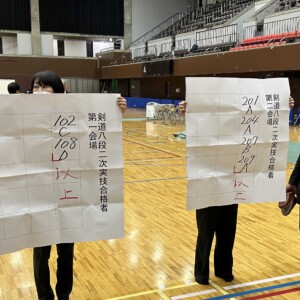 剣道八段二次実技合格者
第一会場
102
C
108
D
以上
剣道八段二次実技合格者
第二会場
201
A
204
A
207
B
209
A
以上